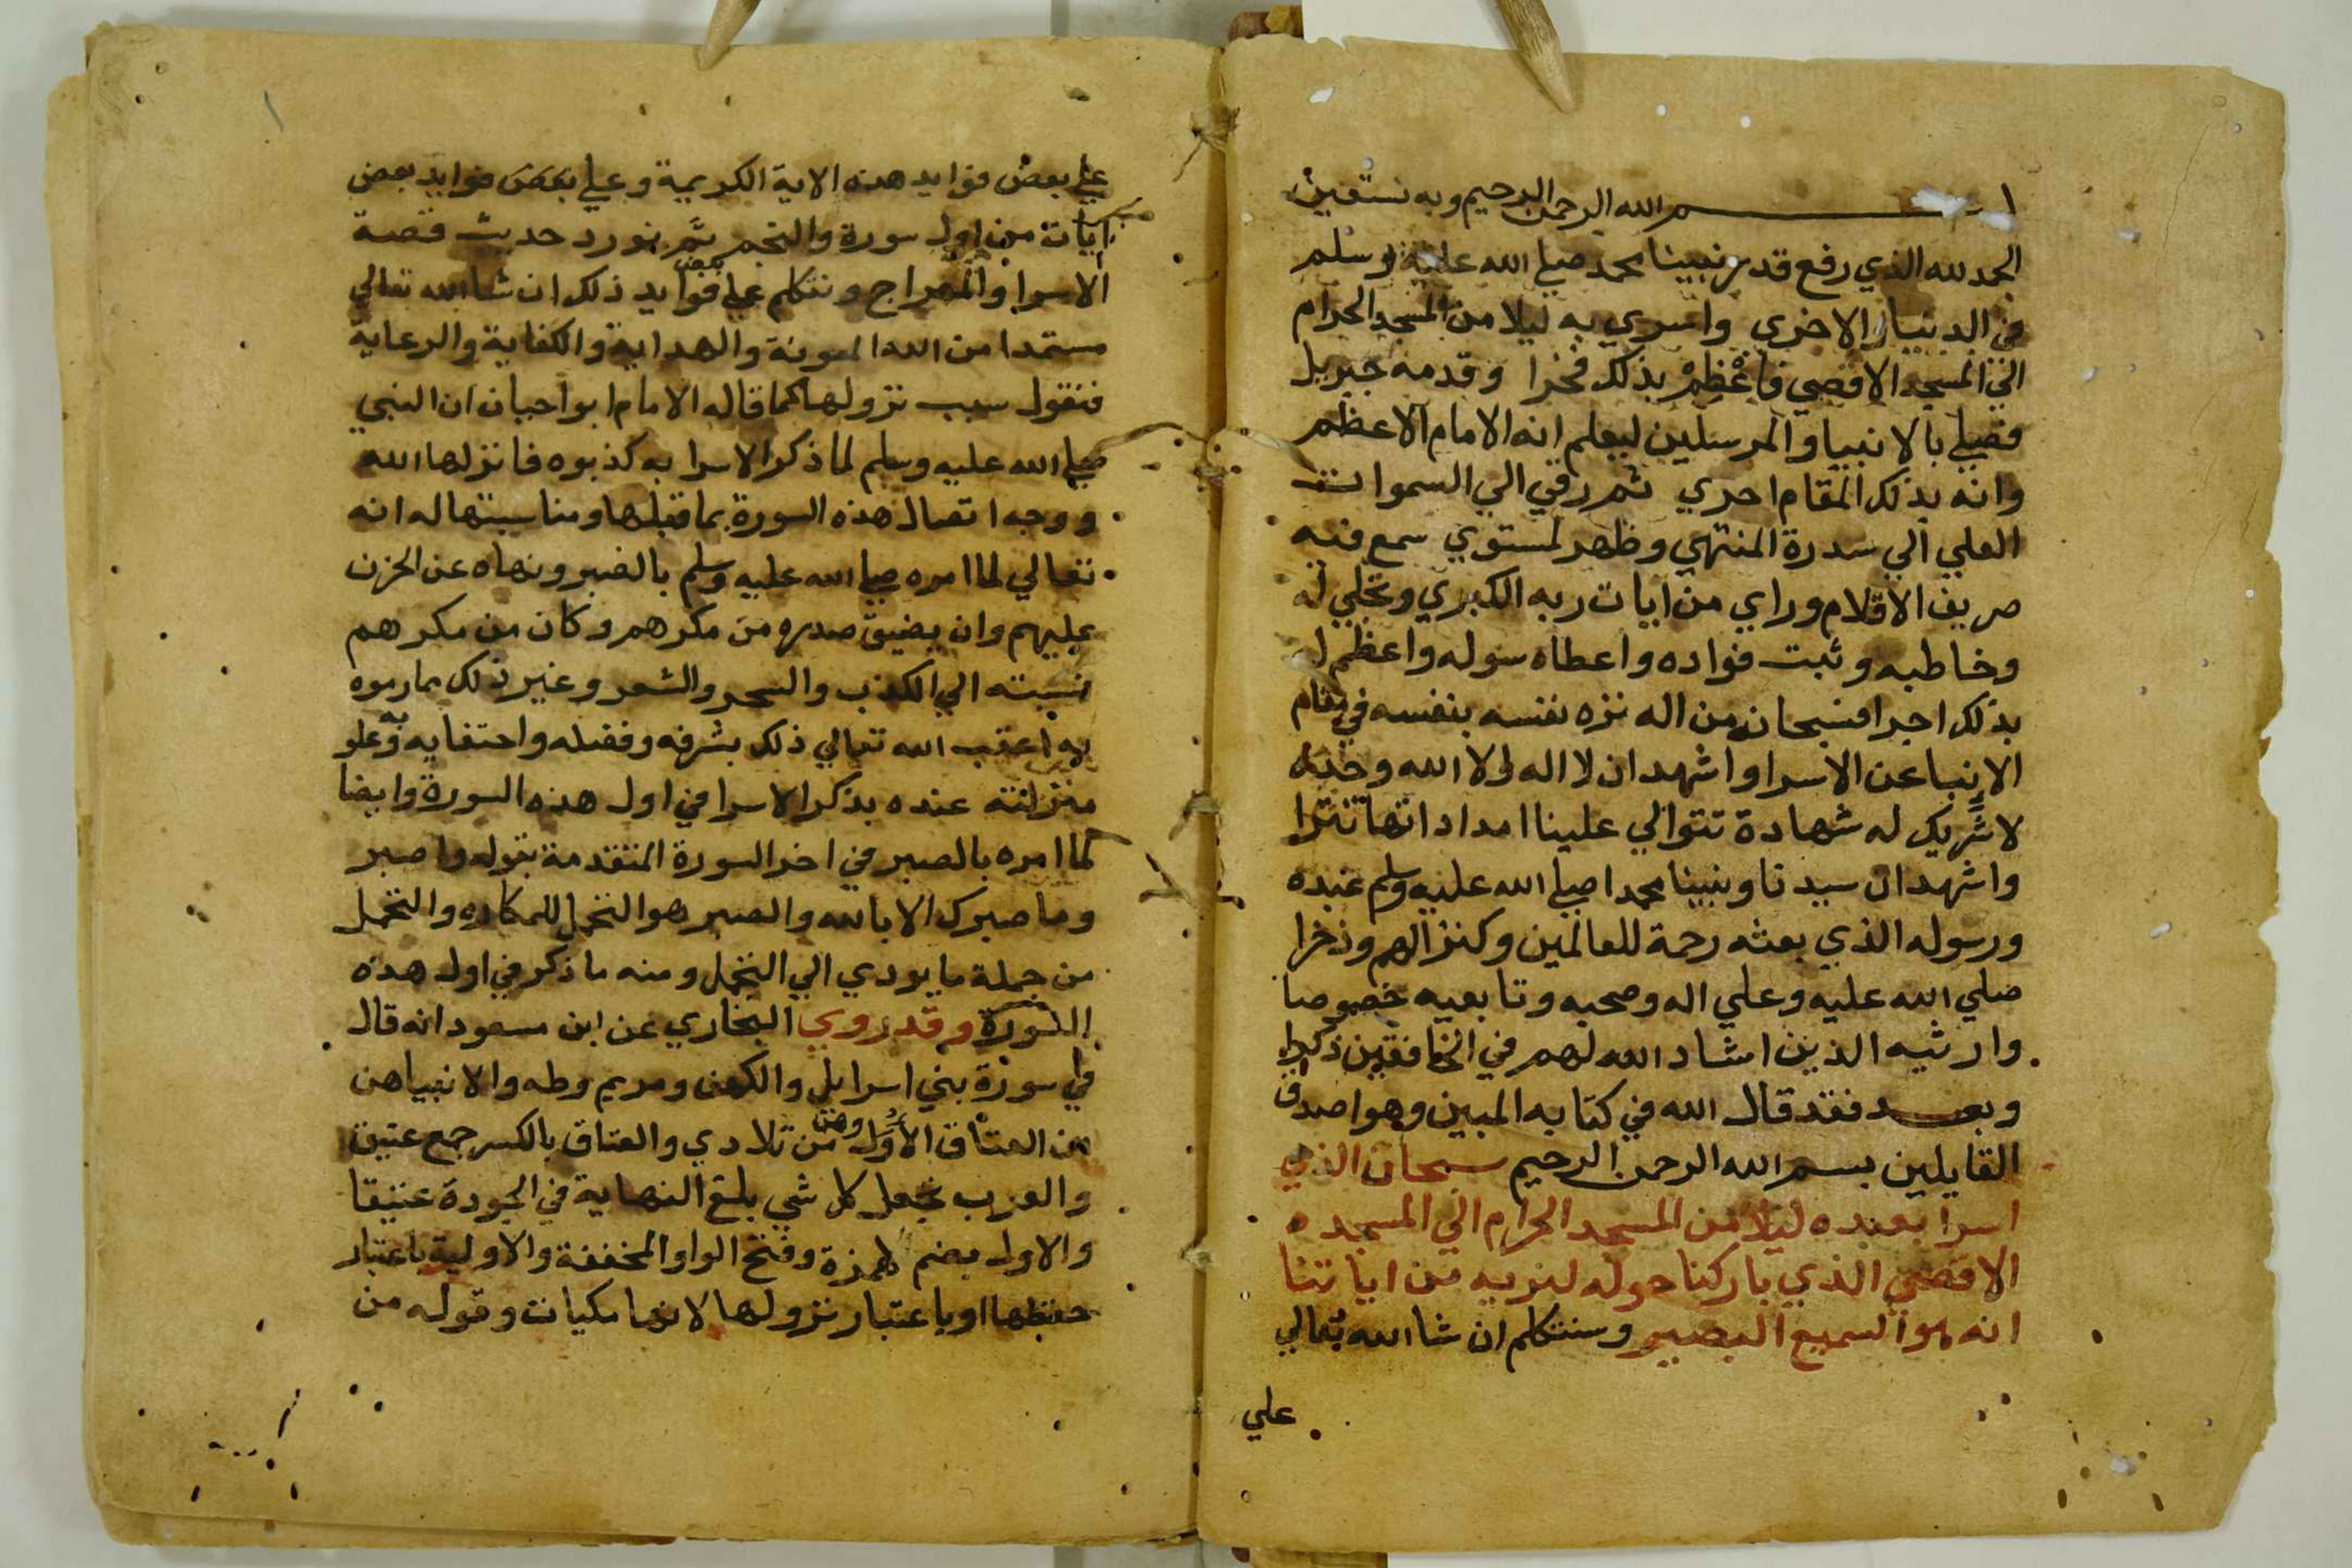 بسم الله الرحمن الرحيم وبه نستعين
الحمد لله الذي رفع قدر نبينا محمد صلي الله عليه وسلم
في الدنيا والاخري واسري به ليلا من المسجد الحرام
الي المسجد الاقصي فاعظم بذلك فخرا وقدمه جبريل
فصلي بالانبيا والمرسلين ليعلم انه الامام الاعظم
وانه بذلك المقام احري ثم رقي الي السموات
العلي الي سدرة المنتهي وظهر لمستوي سمع فيه
صريف الاقلام وراي من ايات ربه الكبري وتجلي له
وخاطبه وثبت فواده واعطاه سوله واعظم له
بذلك اجرا فسبحانه من اله نزه نفسه بنفسه في مقام
الانبا عن الاسرا واشهد ان لا اله الا الله وحده
لا شريك له شهادة تتوالي علينا امداداتها تترا
واشهد ان سيدنا ونبينا محمدا صلي الله عليه وسلم عبده
ورسوله الذي بعثه رحمة للعالمين وكنزا لهم وذخرا
صلي الله عليه وعلي اله وصحبه وتابعيه خصوصا
وارثيه الذين اشاد الله لهم في الخافقين ذكرا
وبعد فقد قال الله في كتابه المبين وهو اصدق
القايلين بسم الله الرحمن الرحيم سبحان الذي
اسرا بعبده ليلا من المسجد الحرام الي المسجد ه
الاقصي الذي باركنا حوله لنريه من اياتنا
انه هو السميع البصير وسنتكلم ان شا الله تعالي
علي
علي بعض فوايد هذه الاية الكريمة وعلي بعض فوايد بعض
ايات من اول سورة والنجم ثم نورد حديث قصة
الاسرا والمعراج ونتكلم علي بعض فوايد ذلك ان شا الله تعالي
مستمدا من الله المعونة والهداية والكفاية والرعاية
فنقول سبب نزولها كما قاله الامام ابوا حيان ان النبي
صلي الله عليه وسلم لما ذكر الاسرا به كذبوه فانزلها الله
ووجه اتصال هذه السورة بما قبلها ومناسبتها له انه
تعالي لما امره صلي الله عليه وسلم بالصبر ونهاه عن الحزن
عليهم وان يضيق صدره من مكرهم وكان من مكرهم
نسبته الي الكذب والسحر والشعر وغير ذلك مما رموه
به اعقب الله تعالي ذلك بشرفه وفضله واحتفايه به وعلو
منزلته عنده بذكر الاسرا في اول هذه السورة وايضا
لما امره بالصبر في اخر السورة المتقدمة بقوله واصبر
وما صبرك الا بالله والصبر هو التحمل للمكاره والتحمل
من جملة ما يودي الي التحمل ومنه ما ذكر في اول هذه
السورة وقد روي البخاري عن ابن مسعود انه قال
في سورة بني اسرايل والكهف ومريم وطه والانبيا هن
من العتاق الاول وهن من تلادي والعتاق بالكسر جمع عتيق
والعرب تجعل كل شي بلغ النهاية في الجودة عتيقا
والاول بضم الهمزة وفتح الواو المخففة والاولية باعتبار
حفظها او باعتبار نزولها لانها مكيات وقوله من